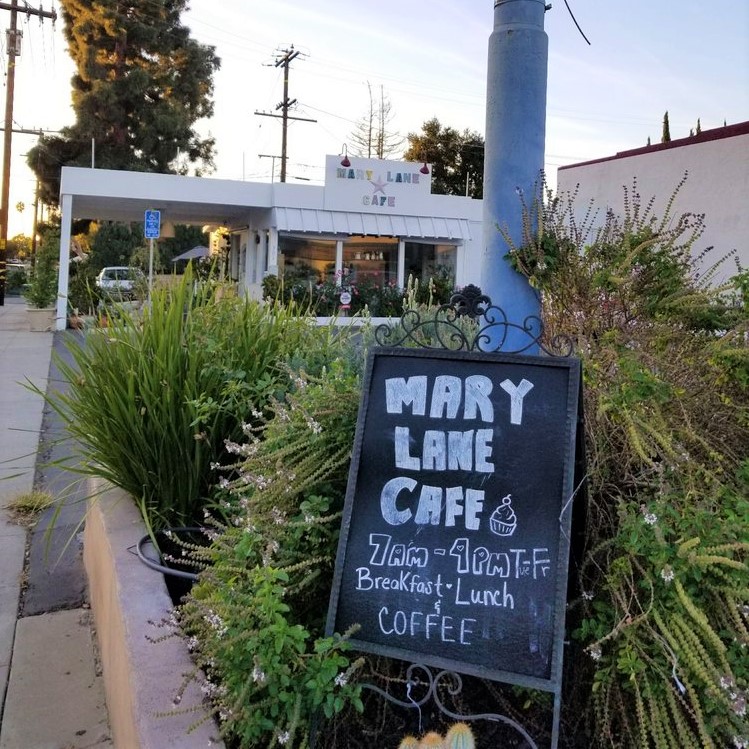 MARY LANE
CAFE
MARY
LANE
CAFE
7AM - 4PM Tue-Fr
Breakfast · Lunch
&
COFFEE